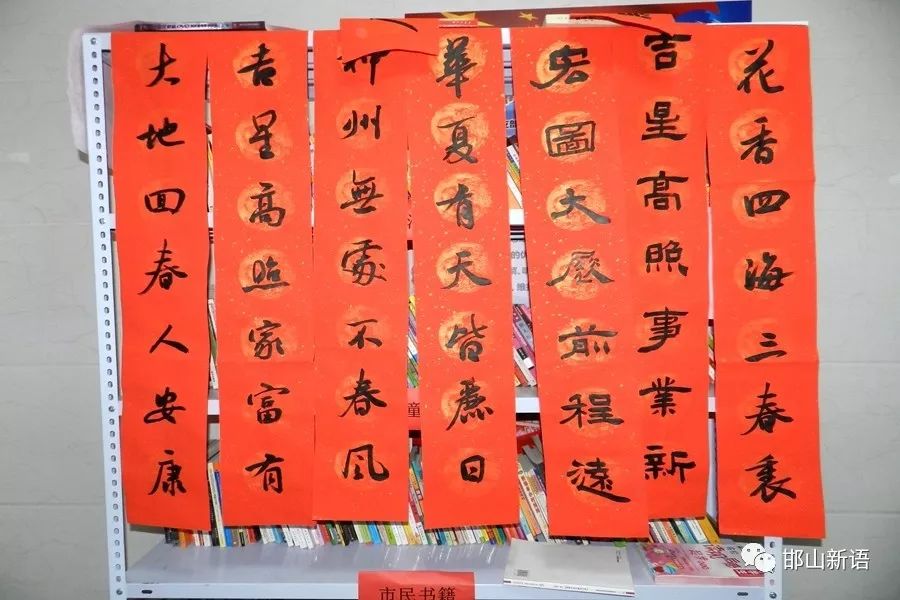 花香四海三春
吉星高照事業新
宏圖大展前程遠
華夏有天皆麗日
神州無處不春風
吉星高照家富有
大地回春人安康
童
市民书籍
邯山新语